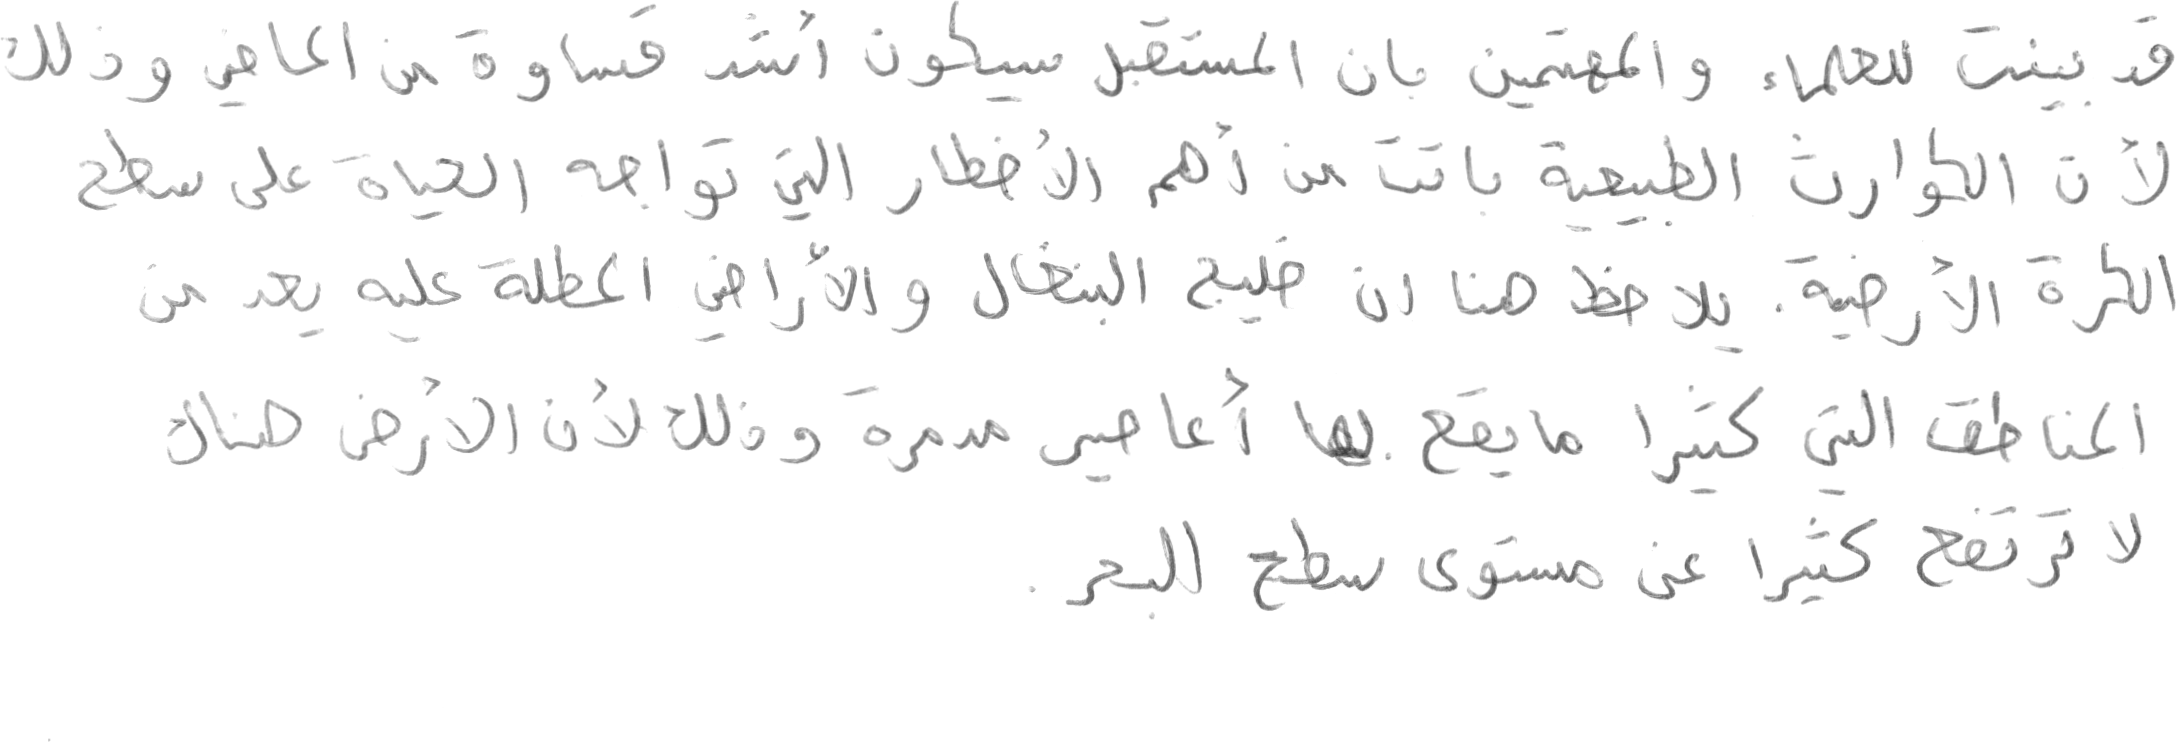 قد بينت للعلماء والمهتمين بان المستقبل سيكون أشد قساوة من الماضي وذلك
لأن الكوارث الطبيعية باتت من أهم الأخطار التي تواجه الحياة على سطح
الكرة الأرضية. يلاحظ هنا ان خليج البنغال والأراضي المطلة عليه يعد من
المناطق التي كثيرا ما يقع بها أعاصير مدمرة وذلك لأن الأرض هناك
لا ترتفع كثيرا عن مستوى سطح البحر.